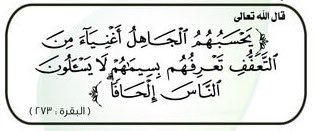 قال الله تعالى
﴿ يَحْسَبُهُمُ الْجَاهِلُ أَغْنِيَاءَ مِنَ
التَّعَفُّفِ تَعْرِفُهُم بِسِيمَاهُمْ لَا يَسْـَٔلُونَ
النَّاسَ إِلْحَافًا ﴾
( البقرة : ٢٧٣ )